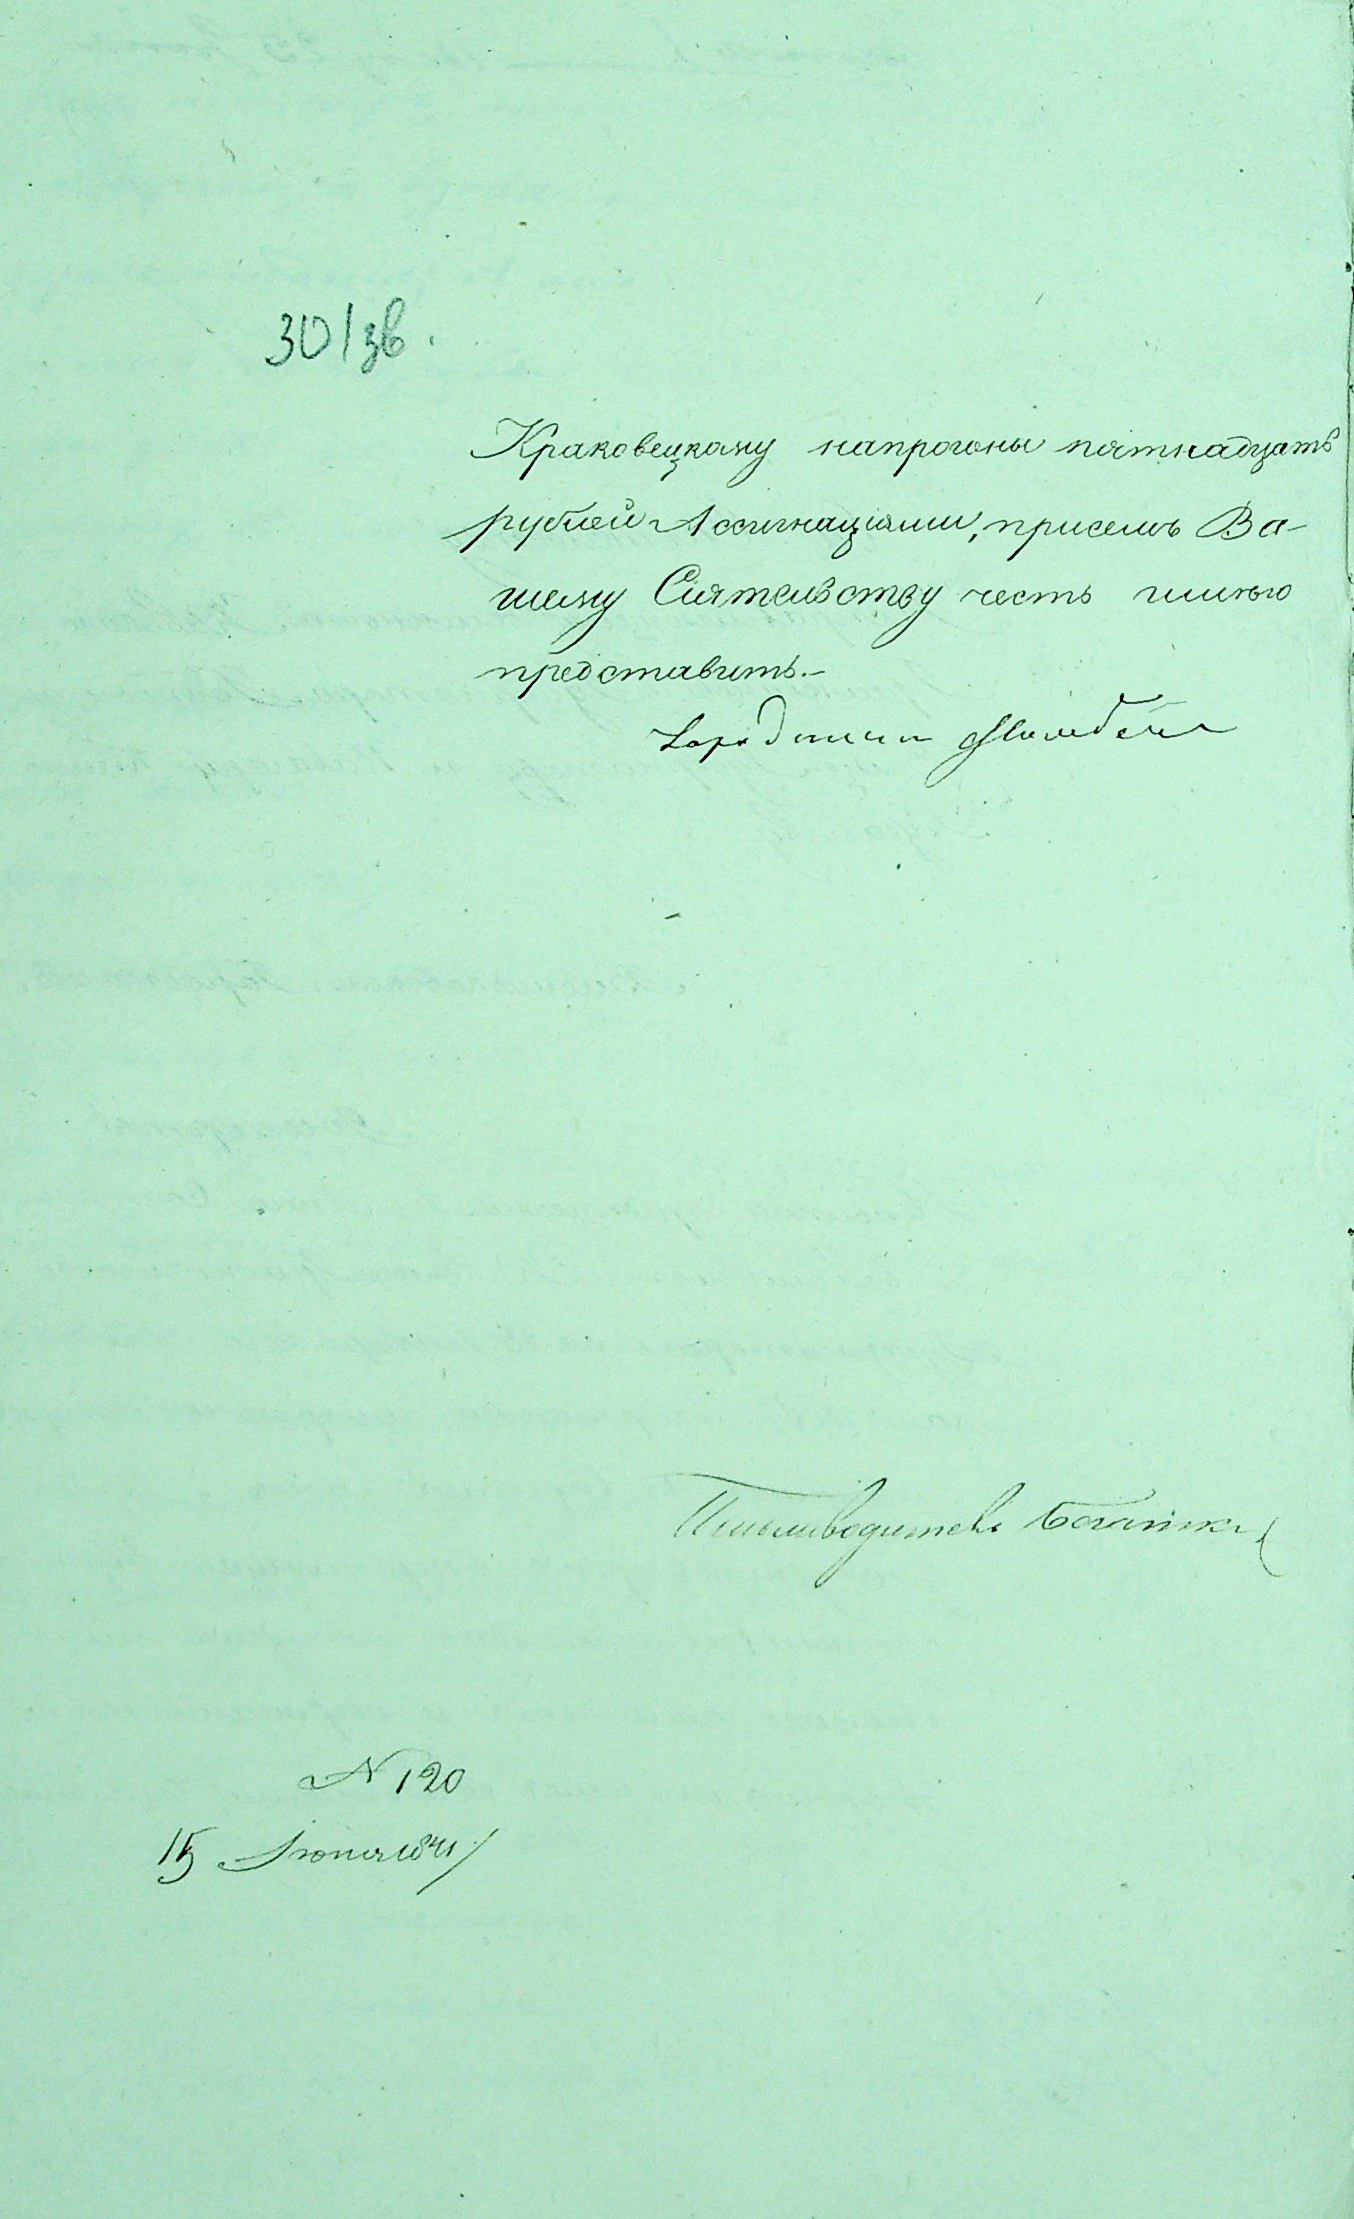 30/зв.
Краковецкому напрогоны пятнадцать
рублей Ассигнаціями, присемъ Ва-
шему Сіятельству честь имѣю
представить.-
Городничий
Письмоводитель
N 120
15 Іюня 1841